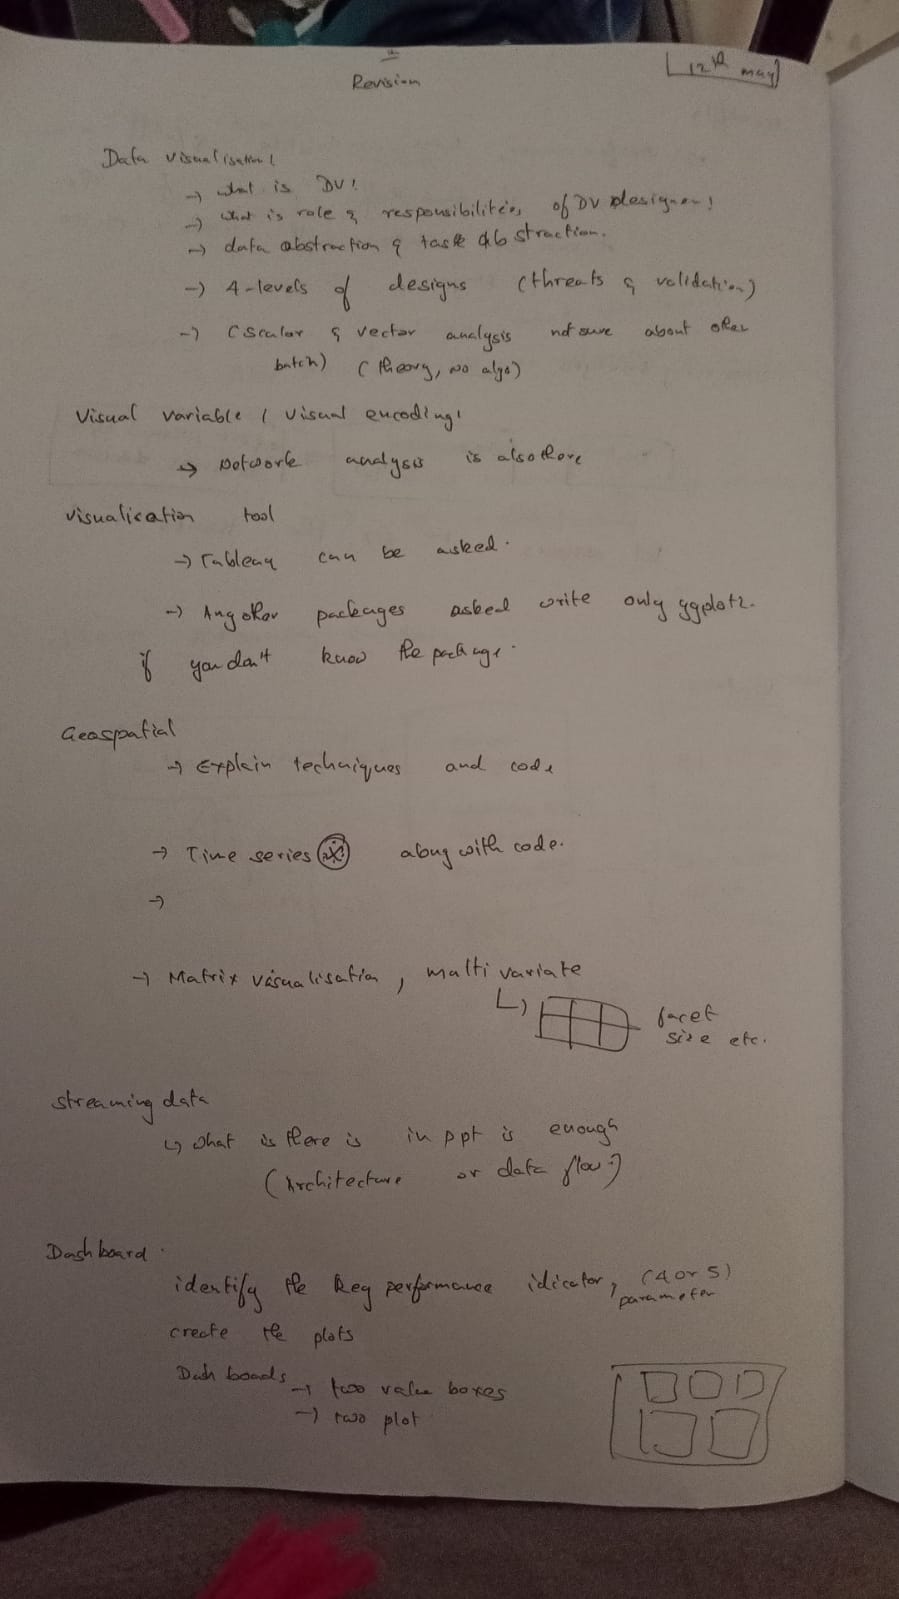 Revision
12th may
Data visualisation!
→ what is DV!
→ what is role & responsibilities of DV designer!
→ data abstraction & task abstraction.
→ 4-levels of designs (threats & validation)
→ (scalar & vector analysis not sure about other
batch) (theory, no algo)
Visual variable / visual encoding!
→ Network analysis is also there
visualisation tool
→ Tableau can be asked.
→ Any other packages asked write only ggplot2.
if you don't know the package.
Geospatial
→ Explain techniques and code
→ Time series along with code.
→
→ Matrix visualisation, multi variate
↳ facet
size etc.
streaming data
↳ what is there is in ppt is enough
(Architecture or data flow)
Dashboard.
identify the key performance idicator, (4 or 5)
parameter
create the plots
Dash boads → two value boxes
→ two plot